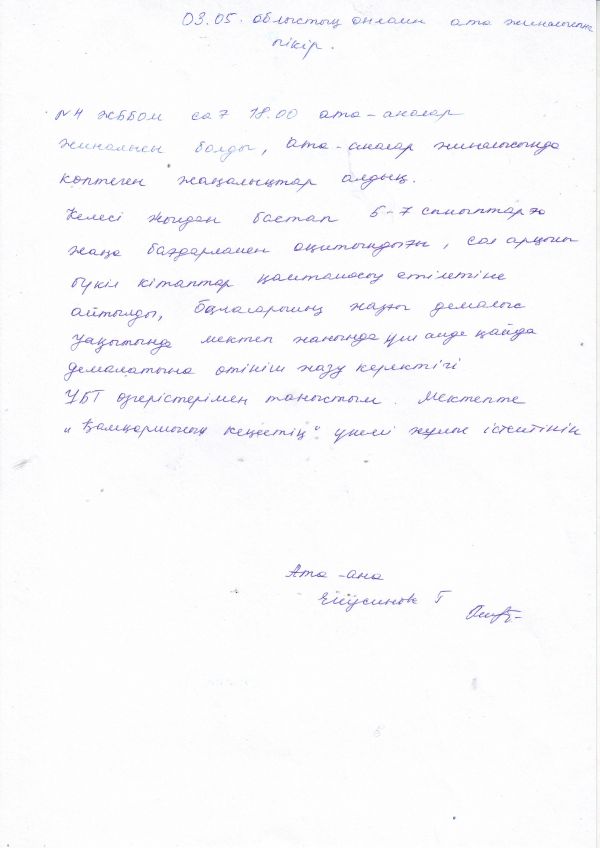 03.05. облыстық онлайн ата жиналысына
пікір.
№4 ЖББОМ сағ 18.00 ата-аналар
жиналысы болды, Ата-аналар жиналысында
көптеген жаңалықтар алдық.
Келесі жылдан бастап 5-7 сыныптарға
жаңа бағдарламен оқитындығы, сол арқылы
бүкіл кітаптар қамтамасыз етілетіне
айтылды, балалардың жазғы демалыс
уақытында мектеп жанында үш әлде қайда
демалатына өтініш жазу керектігі
ҰБТ өзгерістерімен таныстым. Мектепте
"Қамқоршылық кеңестің" үнемі жұмыс істейтінін
Ата-ана
Г